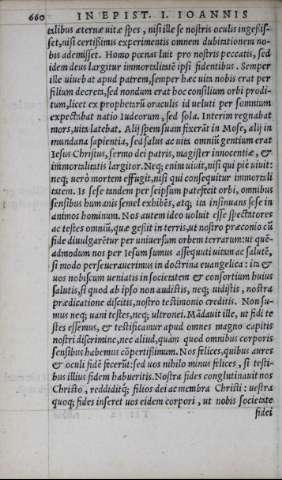 660 IN EPIST. I. IOANNIS
talibus æternæ uitæ spes, nisi ille se nostris oculis ingessis-
set, nisi certissimis experimentis omnem dubitationem no-
bis ademisset. Homo pœnas luit pro nostris peccatis, sed
idem deus largitur immortalitatē ipsi fidentibus. Semper
ille uiuebat apud patrem, semper hæc uita nobis erat per
filium decreta, sed nondum erat hoc consilium orbi prodi-
tum, licet ex prophetarū oraculis id ueluti per somnium
expectabat natio Iudeorum, sed sola. Interim regnabat
mors, uita latebat. Alij spem suam fixerāt in Mose, alij in
mundana sapientia, sed salus ac uita omniū gentium erat
Iesus Christus, sermo dei patris, magister innocentiæ, &
immortalitatis largitor. Neq; enim uiuit, nisi qui pie uiuit:
neq; uero mortem effugit, nisi qui consequitur immortali
tatem. Is sese tandem per seipsum patefecit orbi, omnibus
sensibus humanis semel exhibēs, atq; ita insinuans sese in
animos hominum. Nos autem ideo uoluit esse spectatores
ac testes omniū, quæ gessit in terris, ut nostro præconio cū
fide diuulgarētur per uniuersum orbem terrarum: ut quē-
admodum nos per Iesum sumus assequuti uitam ac salutē,
si modo perseuerauerimus in doctrina euangelica: ita &
uos nobiscum ueniatis in societatem & consortium huius
salutis, si quod ab ipso non audistis, neq; uidistis, nostra
prædicatione discitis, nostro testimonio creditis. Non su-
mus neq; uani testes, neq; ultronei. Mādauit ille, ut fidi te
stes essemus, & testificamur apud omnes magno capitis
nostri discrimine, nec aliud, quàm quod omnibus corporis
sensibus habemus cōpertissimum. Nos felices, quibus aures
& oculi fidē fecerūt: sed uos nihilo minus felices, si testi-
bus illius fidem habueritis. Nostra fides conglutinauit nos
Christo, reddiditq; filios dei ac membra Christi: uestra
quoq; fides inseret uos eidem corpori, ut nobis societate
fidei